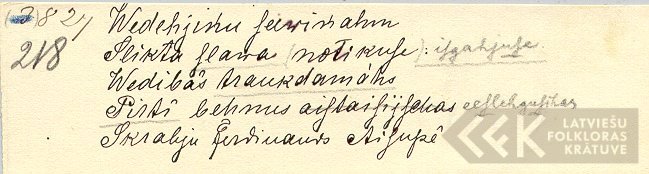 (3824
218
Wedehjiņu seewiņahm
Slikta slawa (notikuse): isgahjuse.
Wedibās traukdamāhs
Pirtī behrnus aistaisijschas eeslehgusihas
Skrabju Ferdinands Aisupē
LATVIEŠU
FOLKLORAS
KRĀTUVE